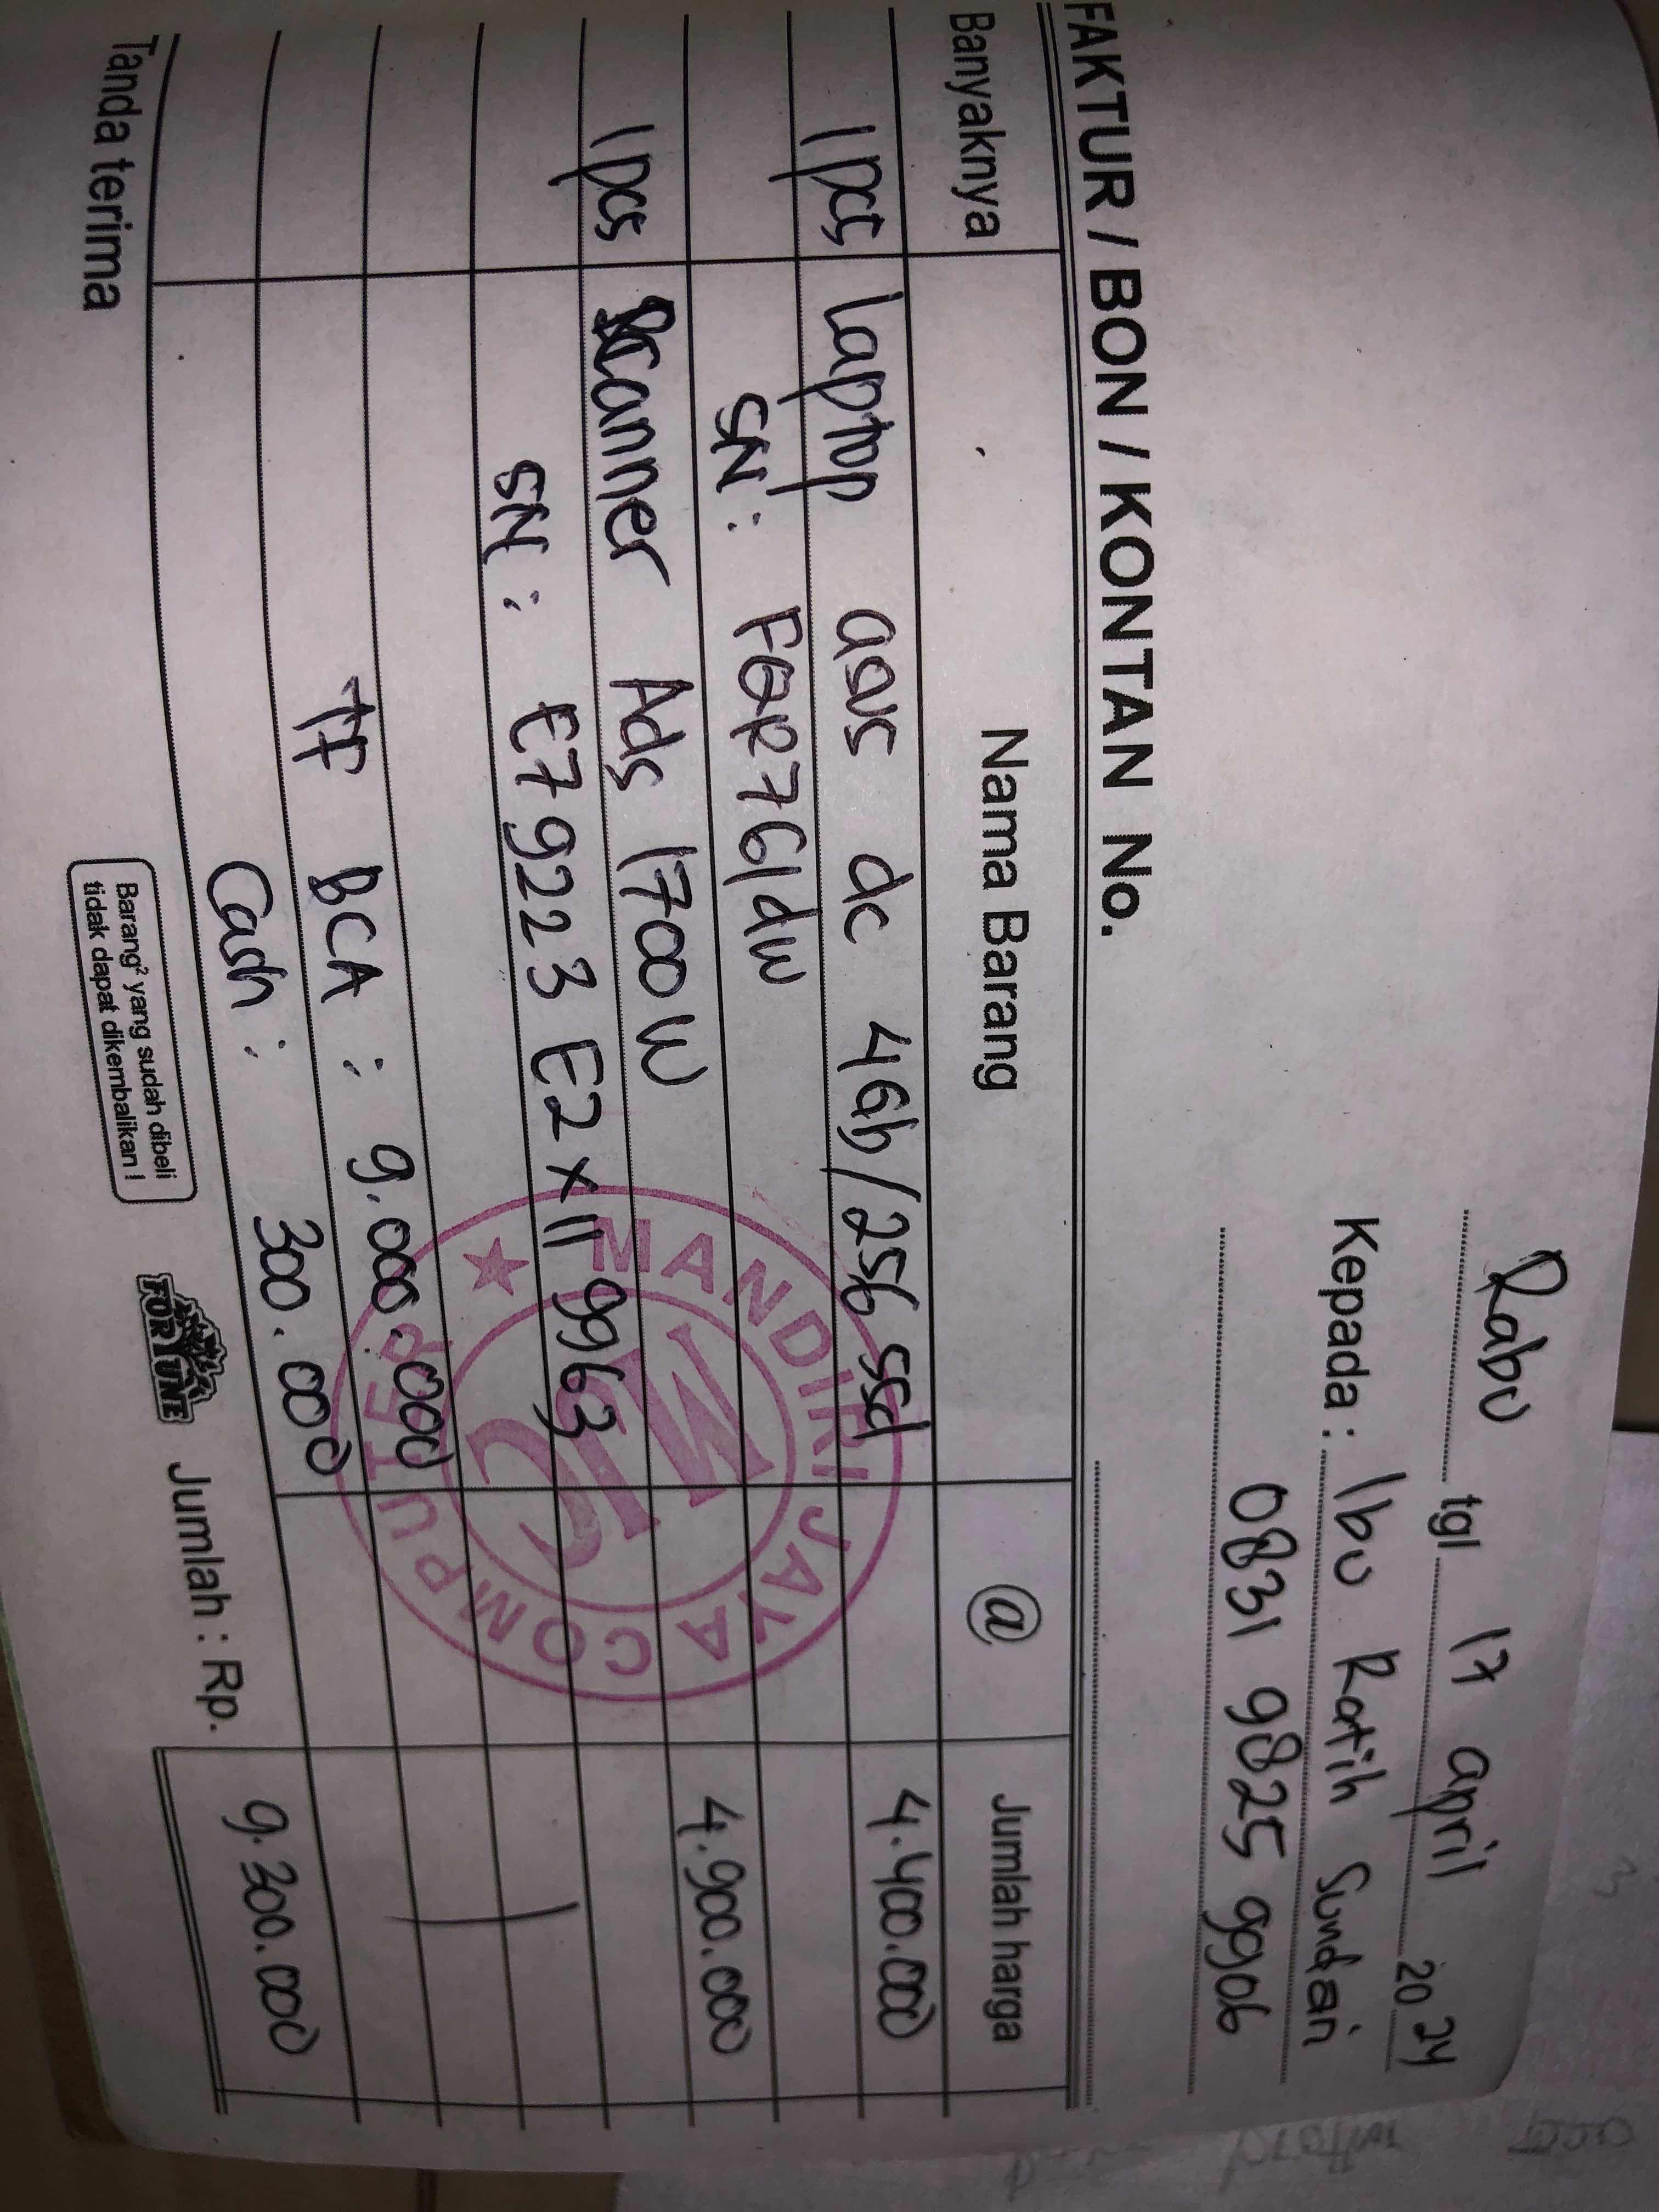 Rabu tgl 17 april 2024
Kepada : Ibu Ratih Sundari
0831 9825 9906
FAKTUR / BON / KONTAN No.
Banyaknya Nama Barang @ Jumlah harga
1 pcs laptop asus dc 4Gb/256 ssd 4.400.000
SN : FQR761dw
1 pcs Scanner Ads 1700 W 4.900.000
SN : E79223 E2 x 119963
TF BCA : 9.000.000
Cash : 300.000
Jumlah : Rp. 9.300.000
Tanda terima
Barang² yang sudah dibeli
tidak dapat dikembalikan !
FORTUNE
MANDIRI JAYA COMPUTER
MJC